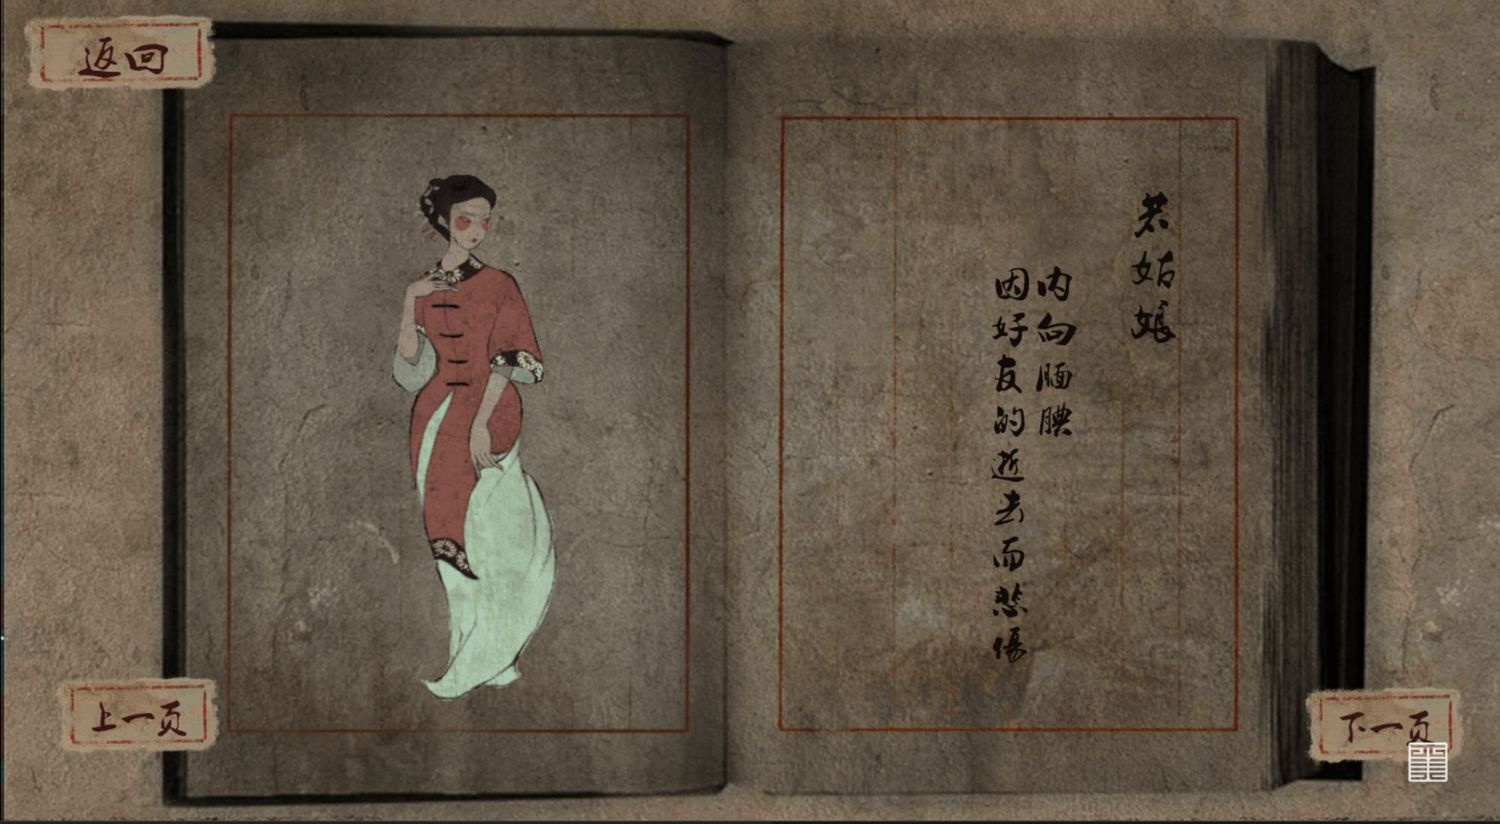 返回
若姑娘
内向腼腆
因好友的逝去而悲傷
上一页
下一页